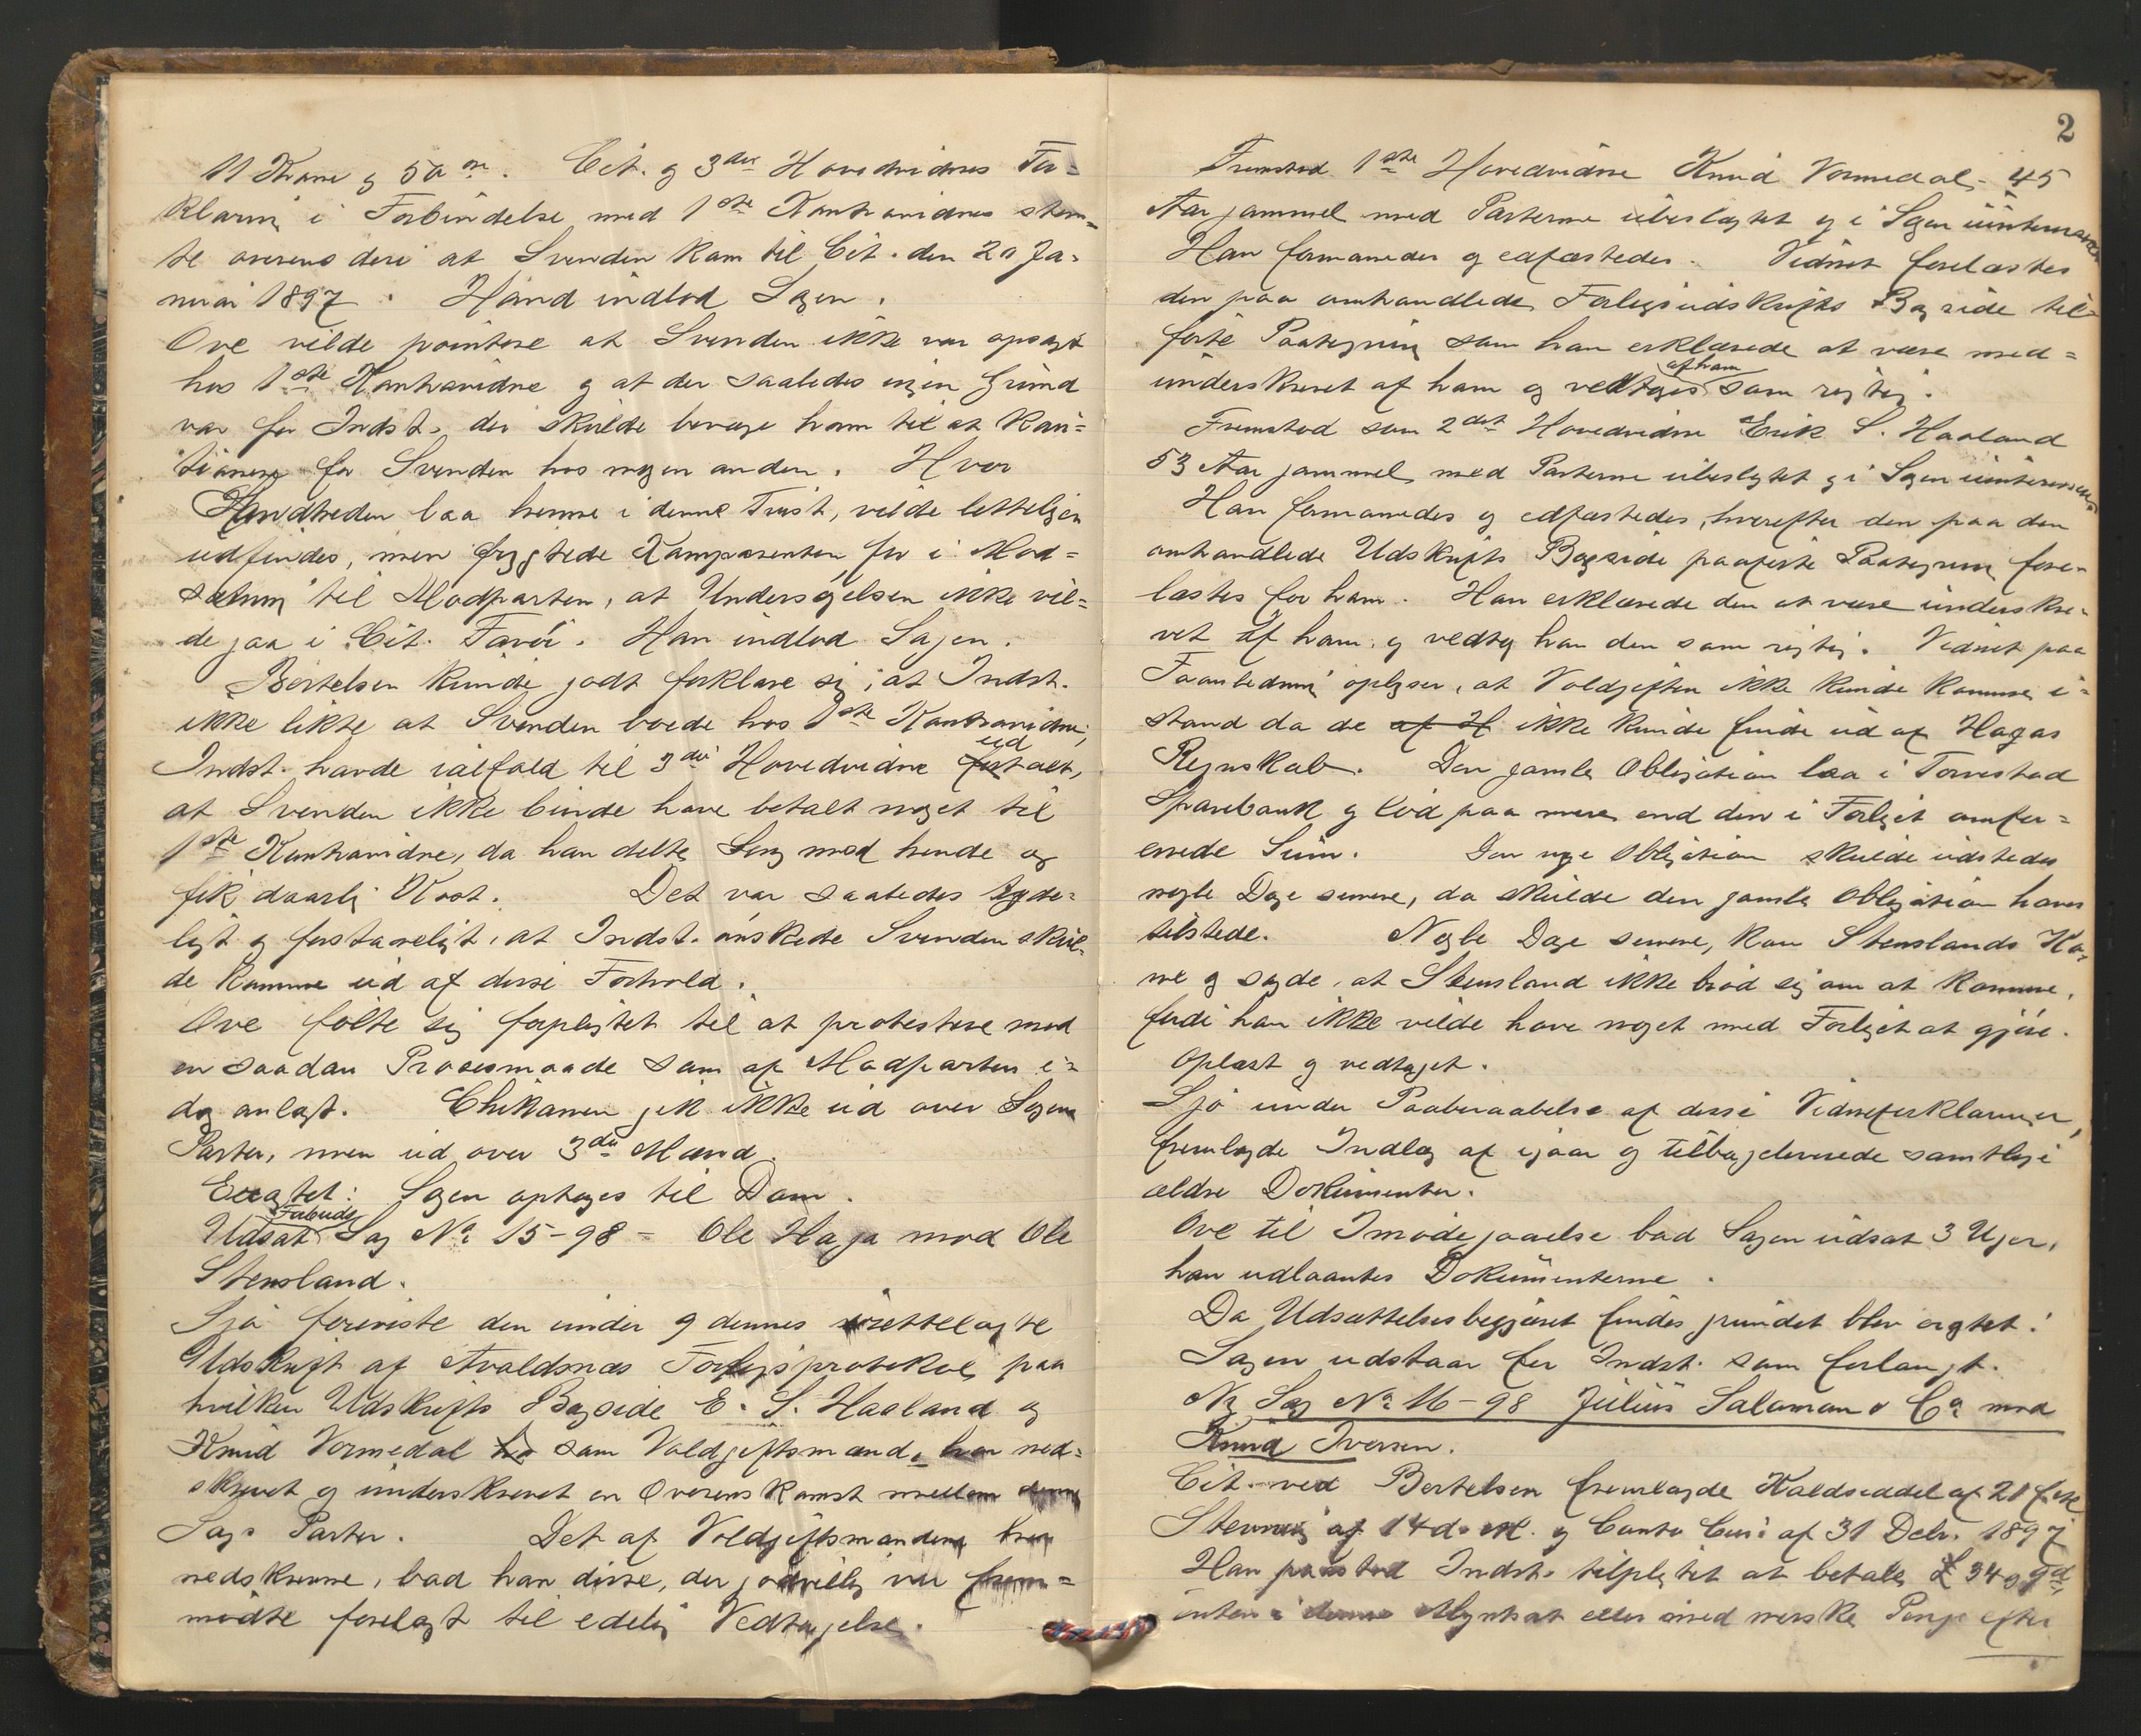 11 Krone og 50 ør. Cit. og 3die Hovedvidnes For-
klaring i Forbindelse med 1ste Kontravidnes stem-
te overens deri at Svenden kom til Cit. den 20 Ja-
nuar 1897. Hand indlod Sagen.
Ove vilde pointere at Svenden ikke var opsagt
hos 1ste Kontravidne og at der saaledes ingen Grund
var for Indst. der skulde bevæge ham til at kau-
tionere for Svenden hos nogen anden. Hvor
Hundheden laa henne i denne Tvist, vilde letteligen
udfindes, men frygtede Komparenten for i Mod-
sætning til Modparten, at Undersøgelsen ikke vil-
de gaa i Cit. Favør. Han indlod Sagen.
Bertelsen kunde godt forklare sig, at Indst.
ikke likte at Svenden boede hos 1ste Kontravidne;
ud
Indst. havde ialfald til 3die Hovedvidne fortalt,
at Svenden ikke burde have betalt noget til
1ste Kontravidne, da han delte Seng med hende og
fik daarlig Kost. Det var saaledes tyde-
ligt og forstaaeligt, at Indst. ønskede Svenden skul-
de komme ud af disse Forhold.
Ove følte sig forpligtet til at protestere mod
en saadan Procesmaade som af Modparten i-
dag anlagt. Chikanen gik ikke ud over Sagens
Parter, men ud over 3die Mænd.
Eragtet: Sagen optages til Dom.
Forbuds
Udsat Sag No 15-98 - Ole Haga mod Ole
Stensland.
Sjø foreviste den under 9 dennes irettelagte
Udskrift af Avaldsnæs Forligsprotokol, paa
hvilken Udskrifts Bagside E. S. Haaland og
Knud Vormedal som Voldgiftsmænd, har ned-
skrevet og underskrevet en Overenskomst mellem denne
Sags Parter. Det af Voldgiftsmændene
nedskrevne, bad han disse, der godvillig var frem-
mødte forelagt til edelig Vedtagelse.
2
Fremstod 1ste Hovedvidne Knud Vormedal, 45
Aar gammel med Parterne ubeslægtet og i Sagen uinteresseret
Han formanedes og edfæstedes. Vidnet forelæstes
den paa omhandlede Forligsudskrifts Bagside til-
førte Paategning som han erklærede at være med-
af ham
underskrevet af ham og vedtages som rigtig.
Fremstod som 2det Hovedvidne Erik S. Haaland
53 Aar gammel, med Parterne ubeslegtet og i Sagen uinteresseret
Han formanedes og edfæstedes, hvorefter den paa den
omhandlede Udskrifts Bagside paaførte Paategning fore-
læstes for ham. Han erklærede den at være underskre-
vet af ham og vedtog han den som rigtig. Vidnet paa
Foranledning oplyser, at Voldgiften ikke kunde komme i-
stand da de af H ikke kunde finde ud af Hagas
Regnskab. Den gamle Obligation laa i Torvestad
Sparebank og lød paa mere end den i Forliget omfor-
enede Sum. Den nye Obligation skulde udstedes
nogle Dage senere, da skulde den gamle Obligation haves
tilstede. Nogle Dage senere, kom Stenslands Ko-
ne og sagde, at Stensland ikke brød sig om at komme,
fordi han ikke vilde have noget med Forliget at gjøre.
Oplæst og vedtaget.
Sjø under Paaberaabelse af disse Vidneforklaringer,
fremlagde Indlæg af igaar og tilbageleverede samtlige
ældre Dokumenter.
Ove til Imødegaaelse bad Sagen udsat 3 Uger,
han udlaantes Dokumenterne.
Da Udsættelsesbegjæret findes grundet blev eragtet:
Sagen udstaar for Indst. som forlangt.
Ny Sag No 16-98 Julius Salomon & Co mod
Knud Iversen.
Cit. ved Bertelsen fremlagde Kaldseddel af 21 f.
Stevning af 14 d. M. og Conto Cur. af 31 Decbr. 1897
Han paastod Indst. tilpligtet at betale £ 34
enten i denne Myntsort eller med norske Penge efter